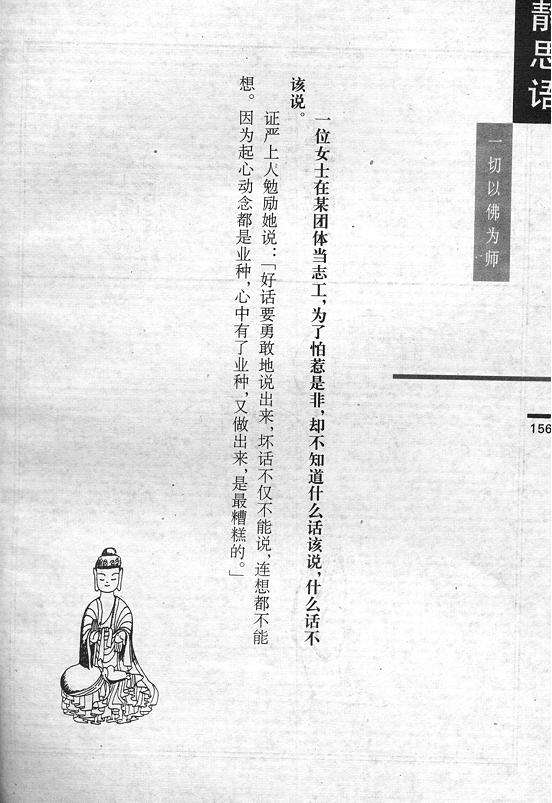 静思语
一切以佛为师
156
一位女士在某团体当志工，为了怕惹是非，却不知道什么话该说，什么话不
该说。
证严上人勉励她说：「好话要勇敢地说出来，坏话不仅不能说，连想都不能
想。因为起心动念都是业种，心中有了业种，又做出来，是最糟糕的。」